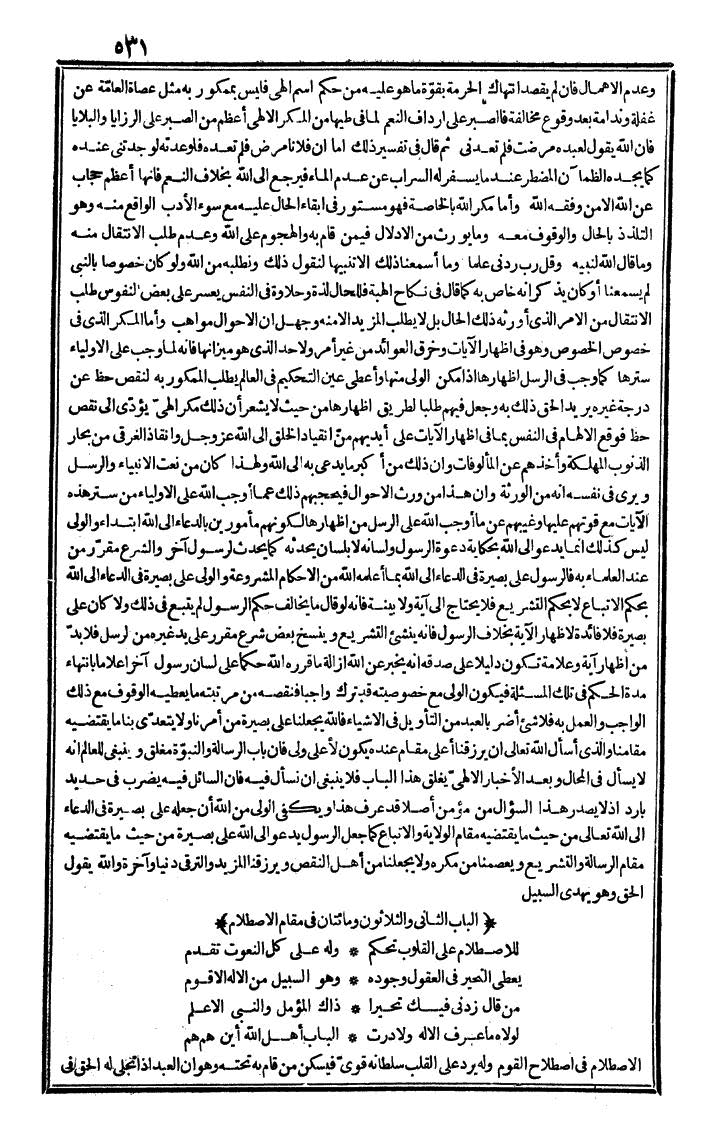 ٥٣١
وعدم الاهمال فان لم يقصد انتهاك الحرمة بقوّة ماهو عليه من حكم اسم الهى فليس بممكور به مثل عصاة العامّة عن
غفلة وندامة بعد وقوع مخالفة فالصبر على ارداف النعم لما فى طيها من المكر الالهى أعظم من الصبر على الرزايا والبلايا
فان الله يقول لعبده مرضت فلم تعدنى ثم قال فى تفسير ذلك اما ان فلانا مرض فلم تعده فلو عدته لوجدتنى عنده
كما يجده الظمآن المضطر عند ما يسفر له السراب عن عدم الماء فيرجع الى الله بخلاف النعم فانها أعظم حجاب
عن الله الا من وفقه الله وأما مكر الله بالخاصة فهو مستور فى ابقاء الحال عليه مع سوء الأدب الواقع منه وهو
التلذذ بالحال والوقوف معه وما يورث من الادلال فيمن قام به والهجوم على الله وعدم طلب الانتقال منه
وما قال الله لنبيه وقل رب زدنى علما وما أسمعنا ذلك الا تنبيها لنقول ذلك ونطلبه من الله ولو كان خصوصا بالنبى
لم يسمعنا أو كان يذكر انه خاص به كما قال فى نكاح الهبة فللحال لذة وحلاوة فى النفس يعسر على بعض النفوس طلب
الانتقال من الامر الذى أورثه ذلك الحال بل لا يطلب المزيد الا منه وجهل ان الاحوال مواهب وأما المكر الذى فى
خصوص الخصوص وهو فى اظهار الآيات وخرق العوائد من غير أمر ولا حد الذى هو ميزانها فانه لما وجب على الاولياء
سترها كما وجب فى الرسل اظهارها اذا مكن الولى منها وأعطى عين التحكيم فى العالم يطلب الممكور به لنقص حظ عن
درجة غيره يريد الحق ذلك به وجعل فيهم طلبا لطريق اظهارها من حيث لا يشعر أن ذلك مكر الهىّ يؤدّى الى نقص
حظ فوقع الالهام فى النفس بما فى اظهار الآيات على أيديهم من انقياد الخلق الى الله عزوجل وانقاذ الغرقى من بحار
الذنوب المهلكة وأخذهم عن المألوفات وان ذلك من أكبر ما يدعى به الى الله ولهذا كان من نعت الانبياء والرسل
ويرى فى نفسه انه من الورثة وان هذا من ورث الاحوال فيحجبهم ذلك عما أوجب الله على الاولياء من ستر هذه
الآيات مع قوتهم عليها وغيبهم عن ما أوجب الله على الرسل من اظهارها لكونهم مأمورين بالدعاء الى الله ابتداء والولى
ليس كذلك انما يدعو الى الله بحكاية دعوة الرسول ولسانه لا بلسان يحدثه كما يحدث لرسول آخر والشرع مقرّر من
عند العلماء به فالرسول على بصيرة فى الدعاء الى الله بما أعلمه الله من الاحكام المشروعة والولى على بصيرة فى الدعاء الى الله
بحكم الاتباع لا بحكم التشريع فلا يحتاج الى آية ولا بينة فانه لو قال ما يخالف حكم الرسول لم يتبع فى ذلك ولا كان على
بصيرة فلا فائدة لاظهار الآية بخلاف الرسول فانه ينشئ التشريع وينسخ بعض شرع مقرر على يد غيره من الرسل فلا بدّ
من اظهار آية وعلامة تكون دليلا على صدقه انه يخبر عن الله ازالة ما قرره الله حكما على لسان رسول آخر اعلاما بانتهاء
مدة الحكم فى تلك المسئلة فيكون الولى مع خصوصيته قد ترك واجبا فنقصه من مرتبته ما يعطيه الوقوف مع ذلك
الواجب والعمل به فلا شئ أضر بالعبد من التأويل فى الاشياء فالله يجعلنا على بصيرة من أمرنا ولا يتعدّى بنا ما يقتضيه
مقامنا والذى أسأل الله تعالى ان يرزقنا أعلى مقام عنده يكون لأعلى ولى فان باب الرسالة والنبوّة مغلق وينبغى للعالم انه
لا يسأل فى المحال وبعد الأخبار الالهىّ بغلق هذا الباب فلا ينبغى ان نسأل فيه فان السائل فيه يضرب فى حديد
بارد اذ لا يصدر هذا السؤال من مؤمن أصلا قد عرف هذا ويكفى الولى من الله أن جعله على بصيرة فى الدعاء
الى الله تعالى من حيث ما يقتضيه مقام الولاية والاتباع كما جعل الرسول يدعو الى الله على بصيرة من حيث ما يقتضيه
مقام الرسالة والتشريع ويعصمنا من مكره ولا يجعلنا من أهل النقص ويرزقنا المزيد والترقى دنيا وآخرة والله يقول
الحق وهو يهدى السبيل
﴿ الباب الثانى والثلاثون ومائتان فى مقام الاصطلام ﴾
للاصطلام على القلوب تحكم * وله على كل النعوت تقدم
يعطى التحير فى العقول وجوده * وهو السبيل من الاله الاقوم
من قال زدنى فيك تحيرا * ذاك المؤمل والنبى الاعلم
لولاه ما عرف الاله ولا درت * الباب أهل الله أين هم هم
الاصطلام فى اصطلاح القوم وله يرد على القلب سلطانه قوىّ فيسكن من قام به تحته وهو ان العبد اذا تجلى له الحق فى